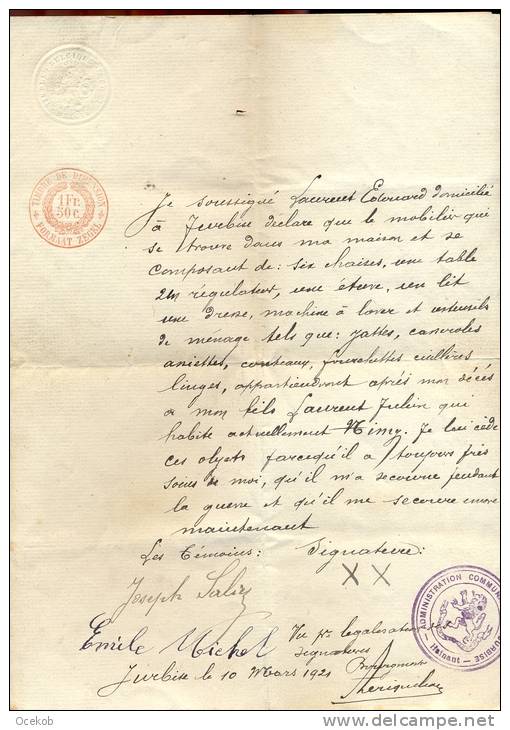 TIMBRE DE DIMENSION
1 Fr.
50 c.
FORMAAT ZEGEL
Je soussigné Laurent Edouard domicilié
à Jurbise déclare que le mobilier qui
se trouve dans ma maison et se
composant de: six chaises, une table
un régulateur, une étuve, un lit
une dresse, machine à laver et ustensils
de ménage tels que: jattes, casseroles
assiettes, couteaux, fourchettes cuillères
linges, appartiendront après mon décès
a mon fils Laurent Julien qui
habite actuellement Nimy. Je lui cède
ces objets parcequ'il a toujours pris
soins de moi, qu'il m'a secourue pendant
la guerre et qu'il me secoure encore
maintenant
Les Témoins: Signataire:
X X
Joseph
Emile Michel
Vu pr légalisation
signatures
Jurbise le 10 Mars 1921
ADMINISTRATION COMMUNALE JURBISE
Hainaut
Ocekob
www.delcampe.net